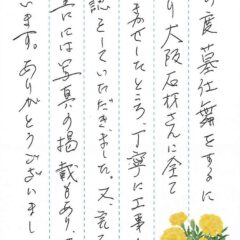 の度墓仕舞をするに
り大阪石材さんに全て
まかせしたところ、丁寧に工事
認をしていただきました。又
には写真の掲載もあり、
います。ありがとうございまし